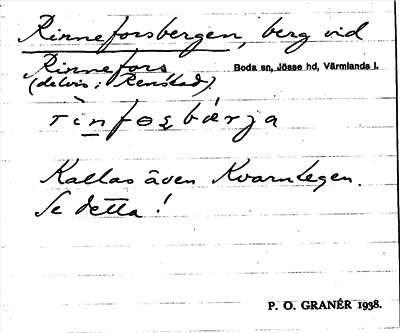 Rinneforsbergen, berg vid
Rinnefors Boda sn, Jösse hd, Värmlands l.
(delvis i Renstad).
rìnfosbærja
Kallas även Kvarntegen.
Se detta!
P. O. GRANÉR 1938.